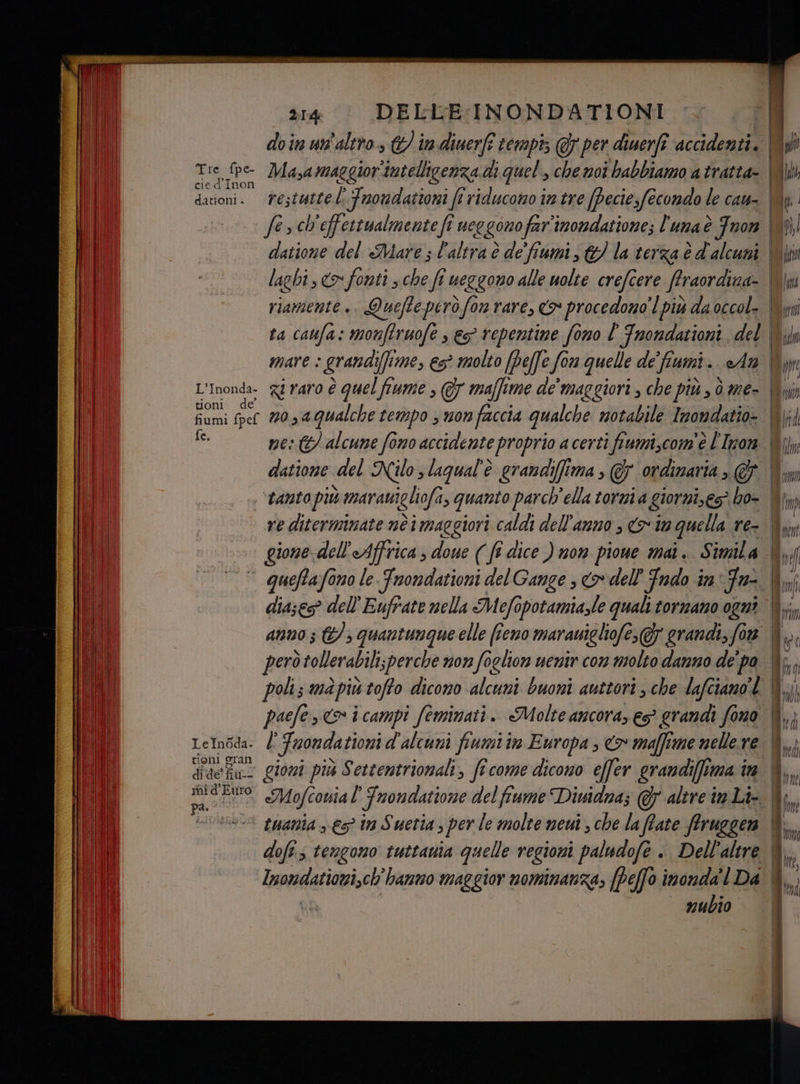 214 DELLE INONDATIONI
do in un'altro, & in diuerſi tempi; & per diuerſi accidenti.
Tre ſpe-
cie d'Inon
dationi.
Ma, a maggior'intelligenza di quel, che noi habbiamo a tratta-
re; tutte l'Inondationi ſi riducono in tre ſpecie, ſecondo le cau-
ſe, ch'effettualmente ſi ueggono far'inondatione; l'una è Inon
datione del Mare; l'altra è de' fiumi, & la terza è d'alcuni
laghi, & fonti, che ſi ueggono alle uolte creſcere ſtraordina-
riamente. Queſte però ſon rare, & procedono'l più da occol-
ta cauſa: monſtruoſe, & repentine ſono l'Inondationi del
mare: grandiſſime, & molto ſpeſſe ſon quelle de' fiumi. An
L'Inonda-
tioni de'
fiumi ſpeſ
ſe.
zi raro è quel fiume, & maſſime de' maggiori, che più, ò me-
no, a qualche tempo, non faccia qualche notabile Inondatio-
ne: & alcune ſono accidente proprio a certi fiumi, com'è l'Inon
datione del Nilo, laqual'è grandiſſima, & ordinaria, &
tanto più marauiglioſa, quanto parch'ella torni a giorni, & ho-
re diterminate nè i maggiori caldi dell'anno, & in quella re-
gione dell'Affrica, doue (ſi dice) non pioue mai. Simil a
queſta ſono le Inondationi del Gange, & dell'Indo in In-
dia; & dell'Eufrate nella Meſopotamia, le quali tornano ogni
anno; &, quantunque elle ſieno marauiglioſe, & grandi, ſon
però tollerabili; perche non ſoglion uenir con molto danno de' po
poli; mà più toſto dicono alcuni buoni auttori, che laſciano'l
paeſe, & i campi ſeminati. Molte ancora, & grandi ſono
Le Inōda-
tioni gran
di de' fiu-
mi d'Euro
pa.
l'Inondationi d'alcuni fiumi in Europa, & maſſime nelle re
gioni più Settentrionali, ſi come dicono eſſer grandiſſima in
Moſconia l'Inondatione del fiume Diuidna; & altre in Li-
tuania, & in Suetia, per le molte neui, che la ſtate ſtruggen
doſi, tengono tuttauia quelle regioni paludoſe. Dell'altre
Inondationi, ch'hanno maggior nominanza, ſpeſſo inonda'l Da
nubio